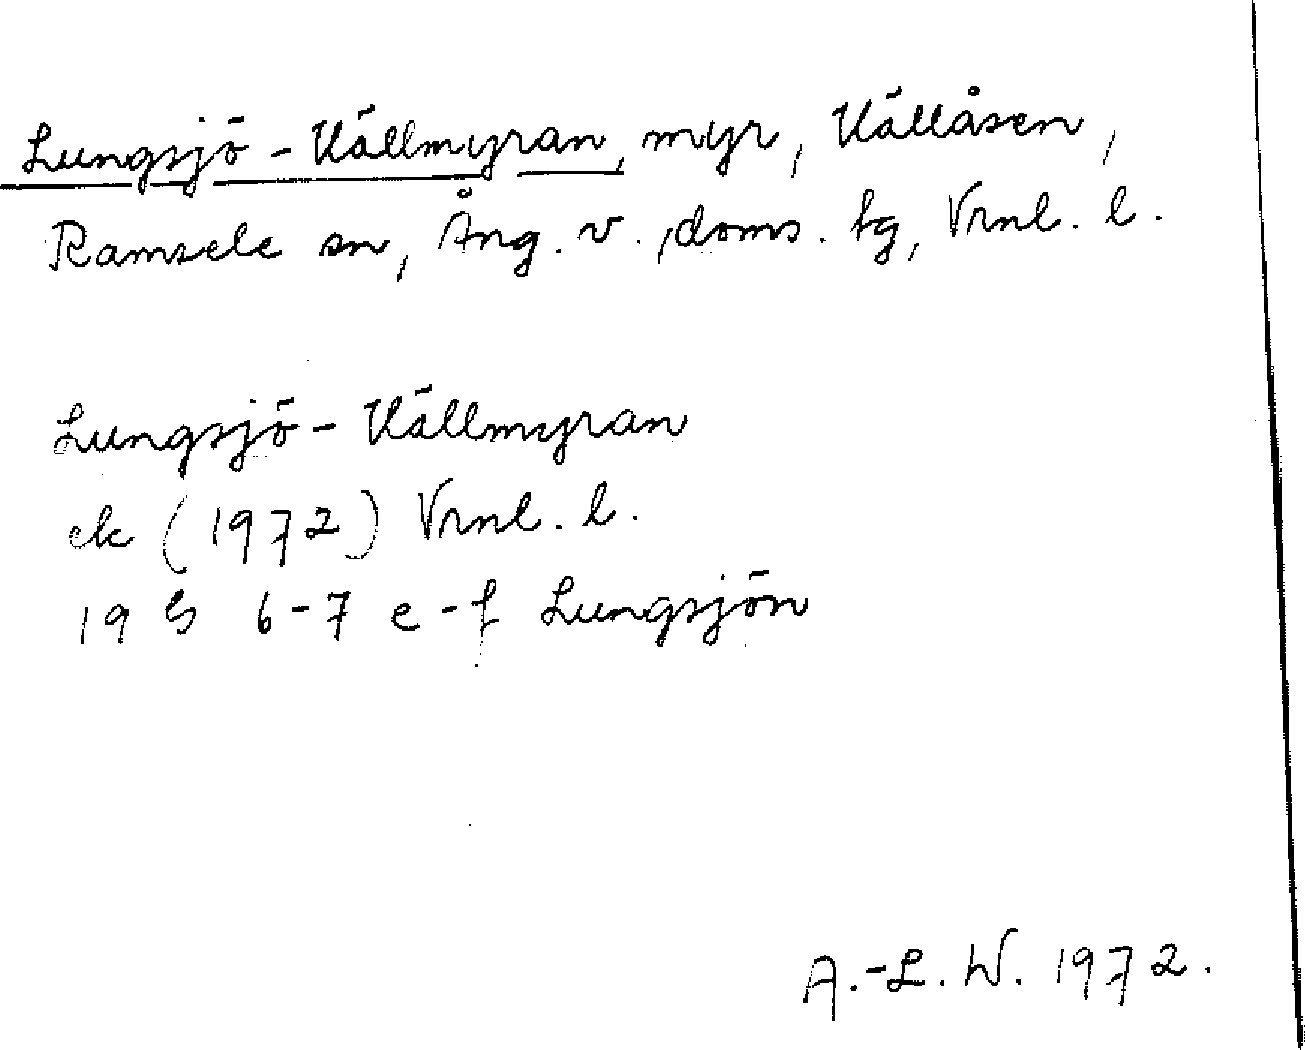 Lungsjö-Källmyran, myr, Källåsen,
Ramsele sn, Ång. v., doms. tg, Vrnl. l.
Lungsjö-Källmyran
ek (1972) Vrnl. l.
19 G 6-7 e-f Lungsjön
A.-L. W. 1972.